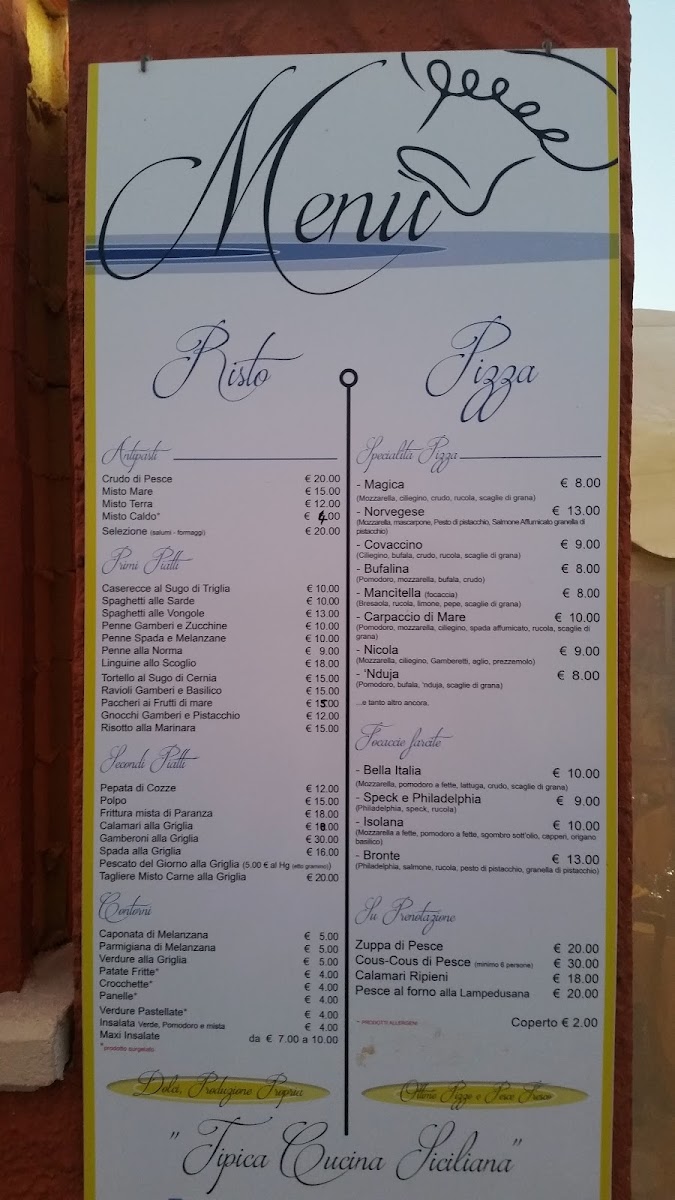 Menù
Risto
Antipasti
Crudo di Pesce € 20.00
Misto Mare € 15.00
Misto Terra € 12.00
Misto Caldo* € 4.00
Selezione (salumi - formaggi) € 20.00
Primi Piatti
Caserecce al Sugo di Triglia € 10.00
Spaghetti alle Sarde € 10.00
Spaghetti alle Vongole € 13.00
Penne Gamberi e Zucchine € 10.00
Penne Spada e Melanzane € 10.00
Penne alla Norma € 9.00
Linguine allo Scoglio € 18.00
Tortello al Sugo di Cernia € 15.00
Ravioli Gamberi e Basilico € 15.00
Paccheri ai Frutti di mare € 15.00
Gnocchi Gamberi e Pistacchio € 12.00
Risotto alla Marinara € 15.00
Secondi Piatti
Pepata di Cozze € 12.00
Polpo € 15.00
Frittura mista di Paranza € 18.00
Calamari alla Griglia € 18.00
Gamberoni alla Griglia € 30.00
Spada alla Griglia € 16.00
Pescato del Giorno alla Griglia (5.00 € al Hg (etto grammo))
Tagliere Misto Carne alla Griglia € 20.00
Contorni
Caponata di Melanzana € 5.00
Parmigiana di Melanzana € 5.00
Verdure alla Griglia € 5.00
Patate Fritte* € 4.00
Crocchette* € 4.00
Panelle* € 4.00
Verdure Pastellate* € 4.00
Insalata Verde, Pomodoro e mista € 4.00
Maxi Insalate da € 7.00 a 10.00
*prodotto surgelato
Dolci, Produzione Propria
Pizza
Specialità Pizza
- Magica € 8.00
(Mozzarella, ciliegino, crudo, rucola, scaglie di grana)
- Norvegese € 13.00
(Mozzarella, mascarpone, Pesto di pistacchio, Salmone Affumicato granella di
pistacchio)
- Covaccino € 9.00
(Ciliegino, bufala, crudo, rucola, scaglie di grana)
- Bufalina € 8.00
(Pomodoro, mozzarella, bufala, crudo)
- Mancitella (focaccia) € 8.00
(Bresaola, rucola, limone, pepe, scaglie di grana)
- Carpaccio di Mare € 10.00
(Pomodoro, mozzarella, ciliegino, spada affumicato, rucola, scaglie di
grana)
- Nicola € 9.00
(Mozzarella, ciliegino, Gamberetti, aglio, prezzemolo)
- 'Nduja € 8.00
(Pomodoro, bufala, 'nduja, scaglie di grana)
...e tanto altro ancora.
Focaccie farcite
- Bella Italia € 10.00
(Mozzarella, pomodoro a fette, lattuga, crudo, scaglie di grana)
- Speck e Philadelphia € 9.00
(Philadelphia, speck, rucola)
- Isolana € 10.00
(Mozzarella a fette, pomodoro a fette, sgombro sott'olio, capperi, origano
basilico)
- Bronte € 13.00
(Philadelphia, salmone, rucola, pesto di pistacchio, granella di pistacchio)
Su Prenotazione
Zuppa di Pesce € 20.00
Cous-Cous di Pesce (minimo 6 persone) € 30.00
Calamari Ripieni € 18.00
Pesce al forno alla Lampedusana € 20.00
* PRODOTTI ALLERGENI
Coperto € 2.00
Ottime Pizze e Pesce Fresco
"Tipica Cucina Siciliana"